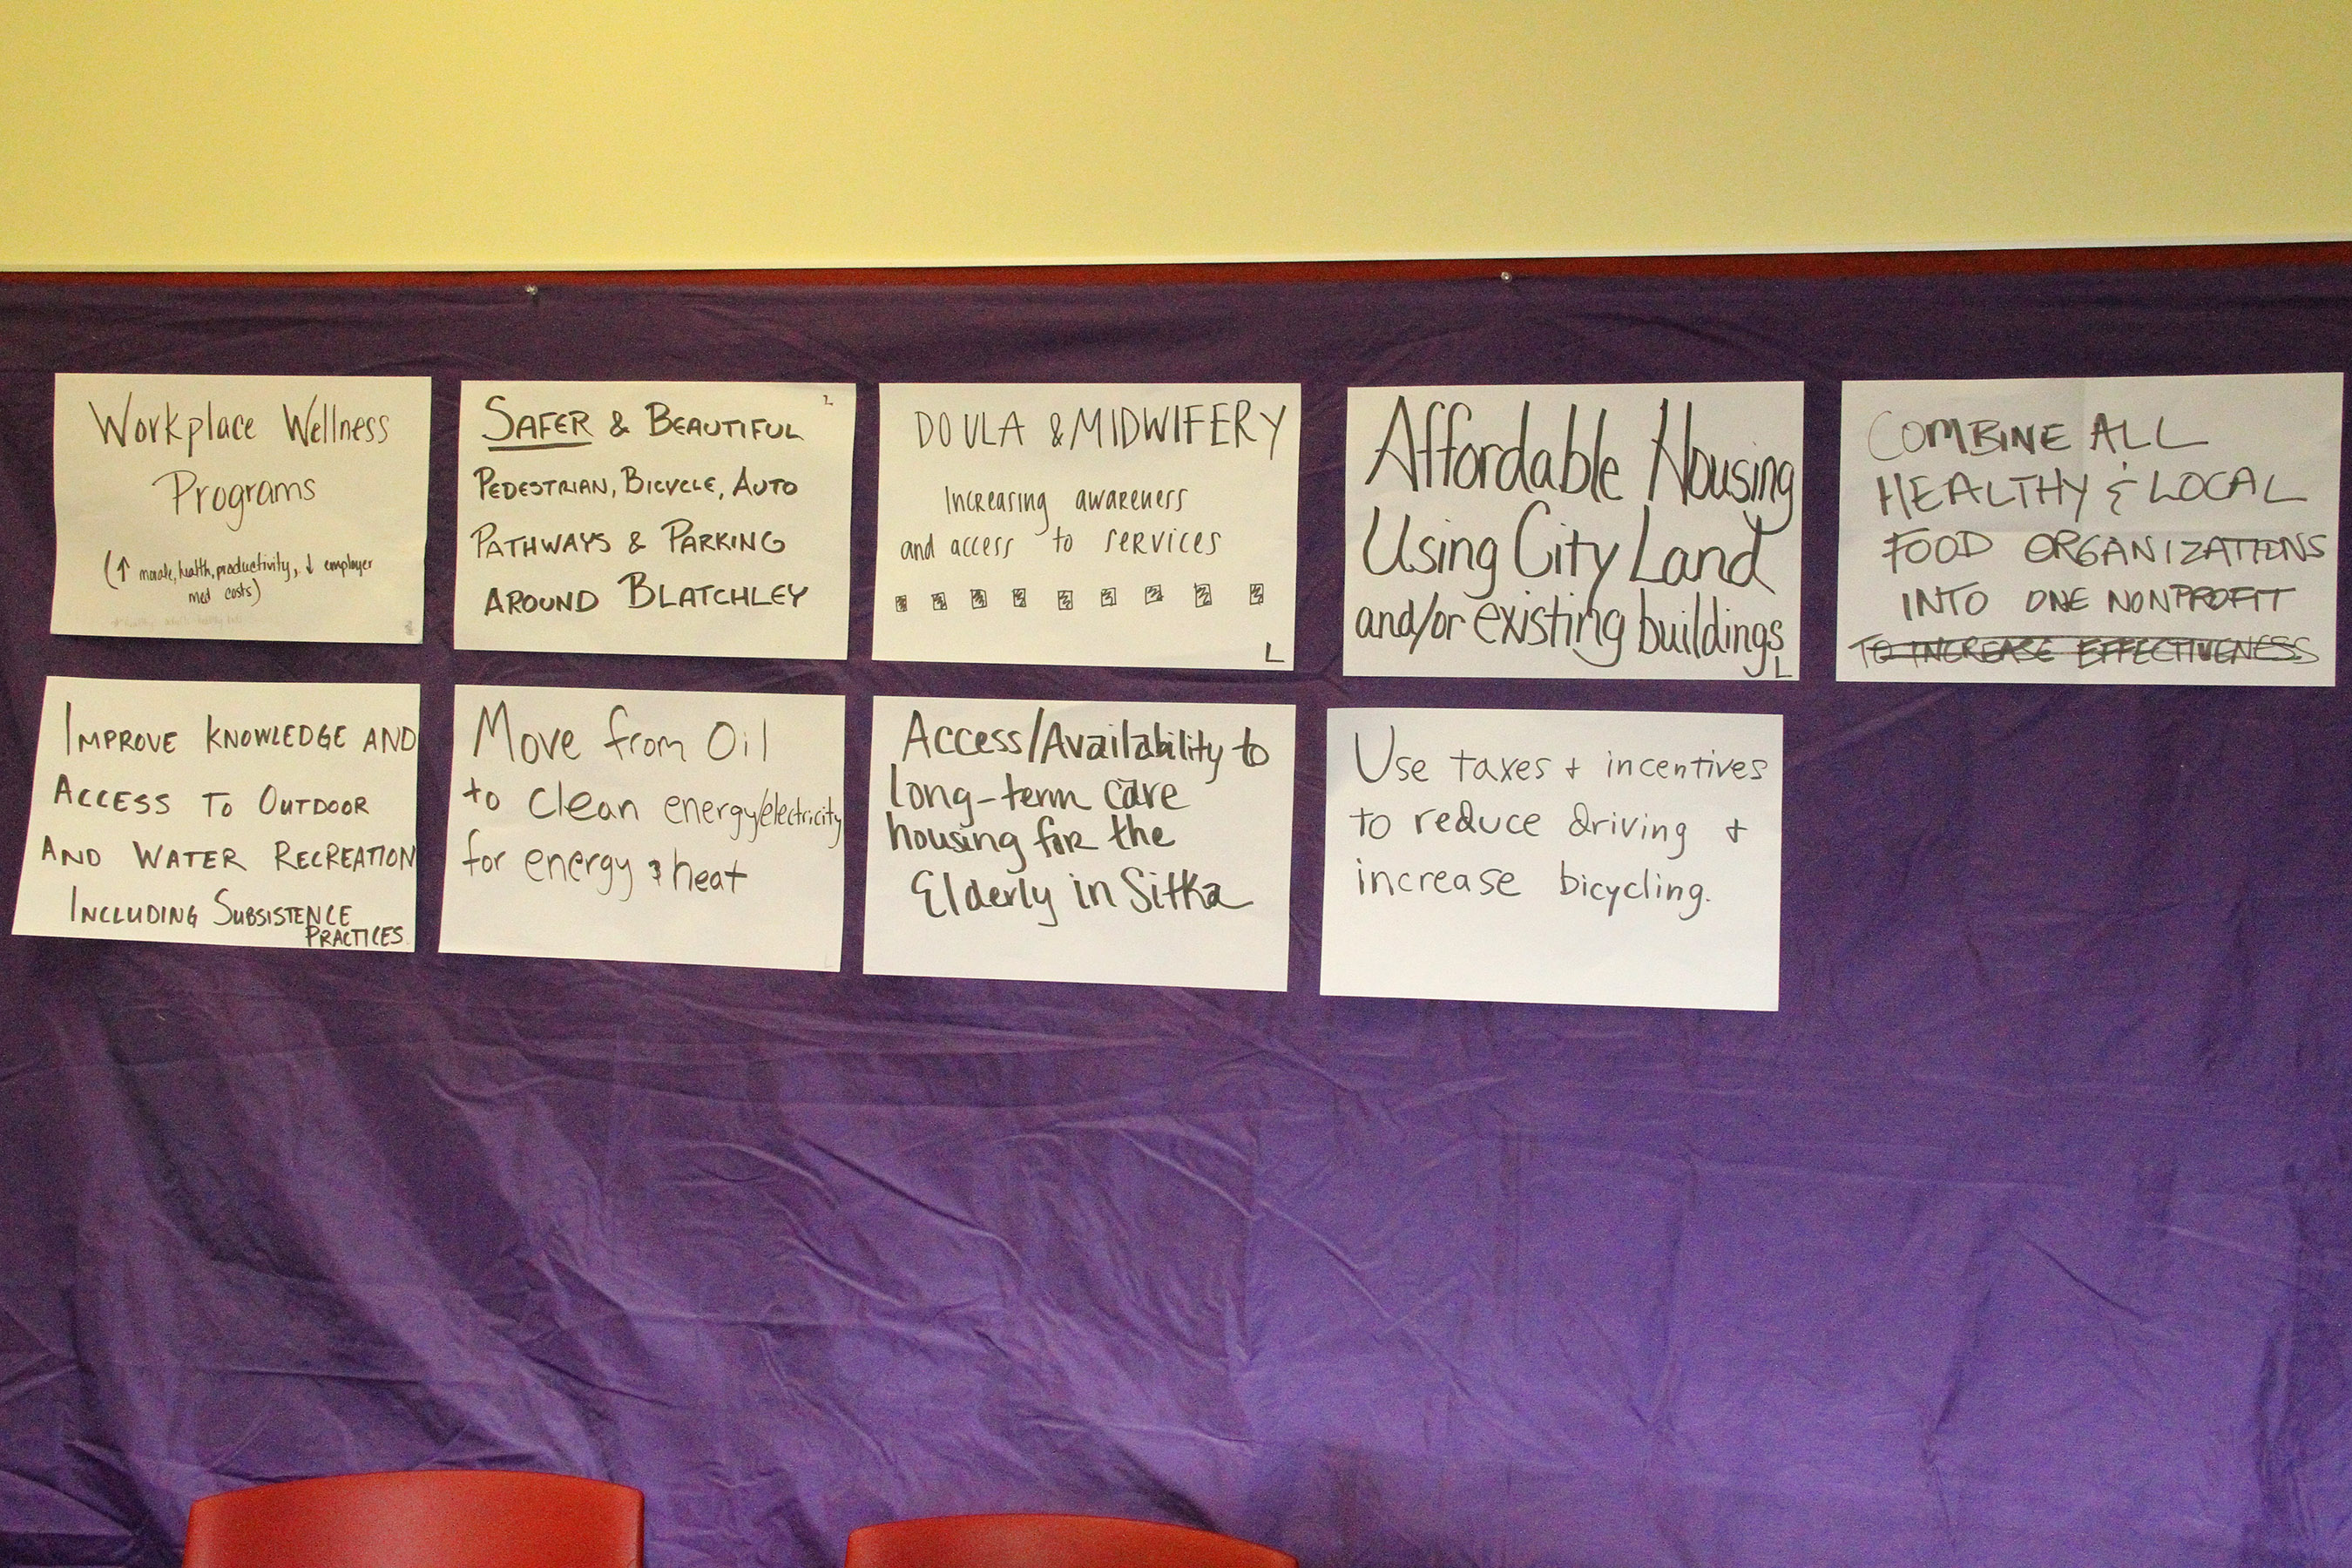 Workplace Wellness
Programs
(↑ morale, health, productivity, ↓ employer
med costs)
SAFER & BEAUTIFUL
PEDESTRIAN, BICYCLE, AUTO
PATHWAYS & PARKING
AROUND BLATCHLEY
DOULA & MIDWIFERY
Increasing awareness
and access to services
L
Affordable Housing
Using City Land
and/or existing buildings
L
COMBINE ALL
HEALTHY & LOCAL
FOOD ORGANIZATIONS
INTO ONE NONPROFIT
TO INCREASE EFFECTIVENESS
IMPROVE KNOWLEDGE AND
ACCESS TO OUTDOOR
AND WATER RECREATION
INCLUDING SUBSISTENCE
PRACTICES.
Move from Oil
to clean energy/electricity
for energy & heat
Access/Availability to
long-term care
housing for the
Elderly in Sitka
Use taxes + incentives
to reduce driving +
increase bicycling.